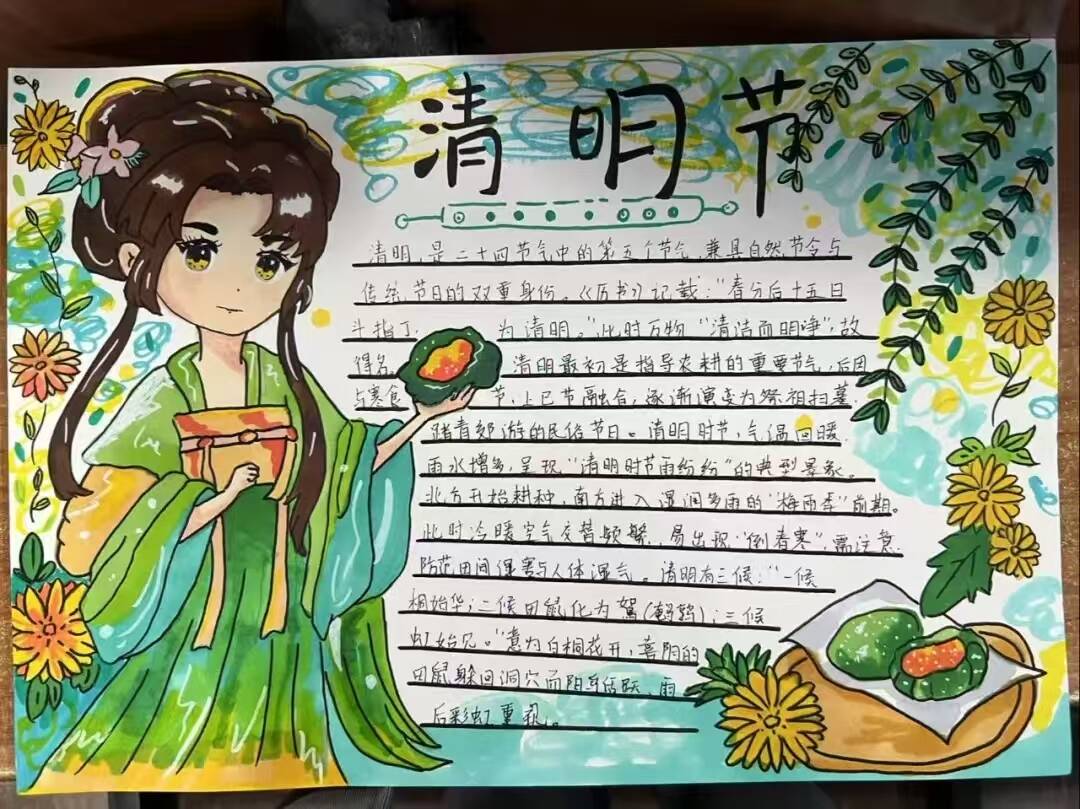 清明节
清明,是二十四节气中的第五个节气,兼具自然节令与
传统节日的双重身份。《历书》记载:“春分后十五日
斗指丁 为清明。”此时万物“清洁而明净”,故
得名。清明最初是指导农耕的重要节气,后因
与寒食节,上巳节融合,逐渐演变为祭祖扫墓
踏青郊游的民俗节日。清明时节,气温回暖
雨水增多,呈现“清明时节雨纷纷”的典型景象。
北方开始耕种,南方进入湿润多雨的“梅雨季”前期。
此时冷暖空气交替频繁,易出现“倒春寒”,需注意
防范田间湿害与人体湿气。清明有三候:“一候
桐始华;二候田鼠化为鴽(鹌鹑);三候
虹始见。”意为白桐花开,喜阴的
田鼠躲回洞穴而阳鸟活跃,雨
后彩虹重现。